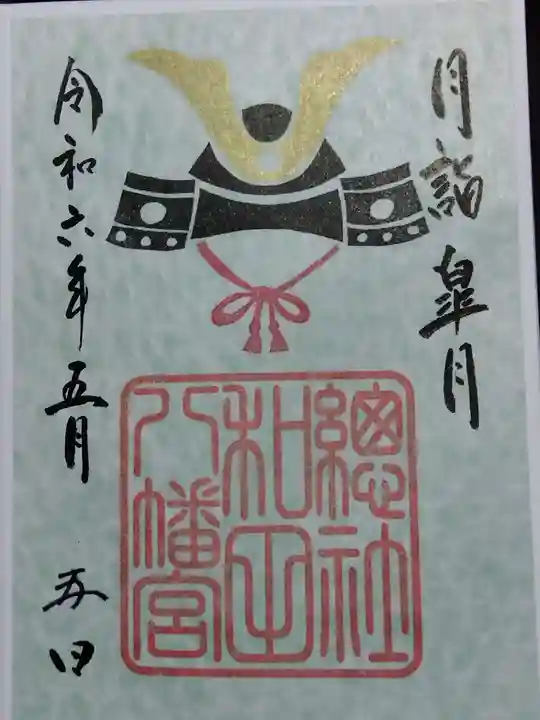 月詣 皐月
總社
和田
八幡宮
令和六年五月 五日